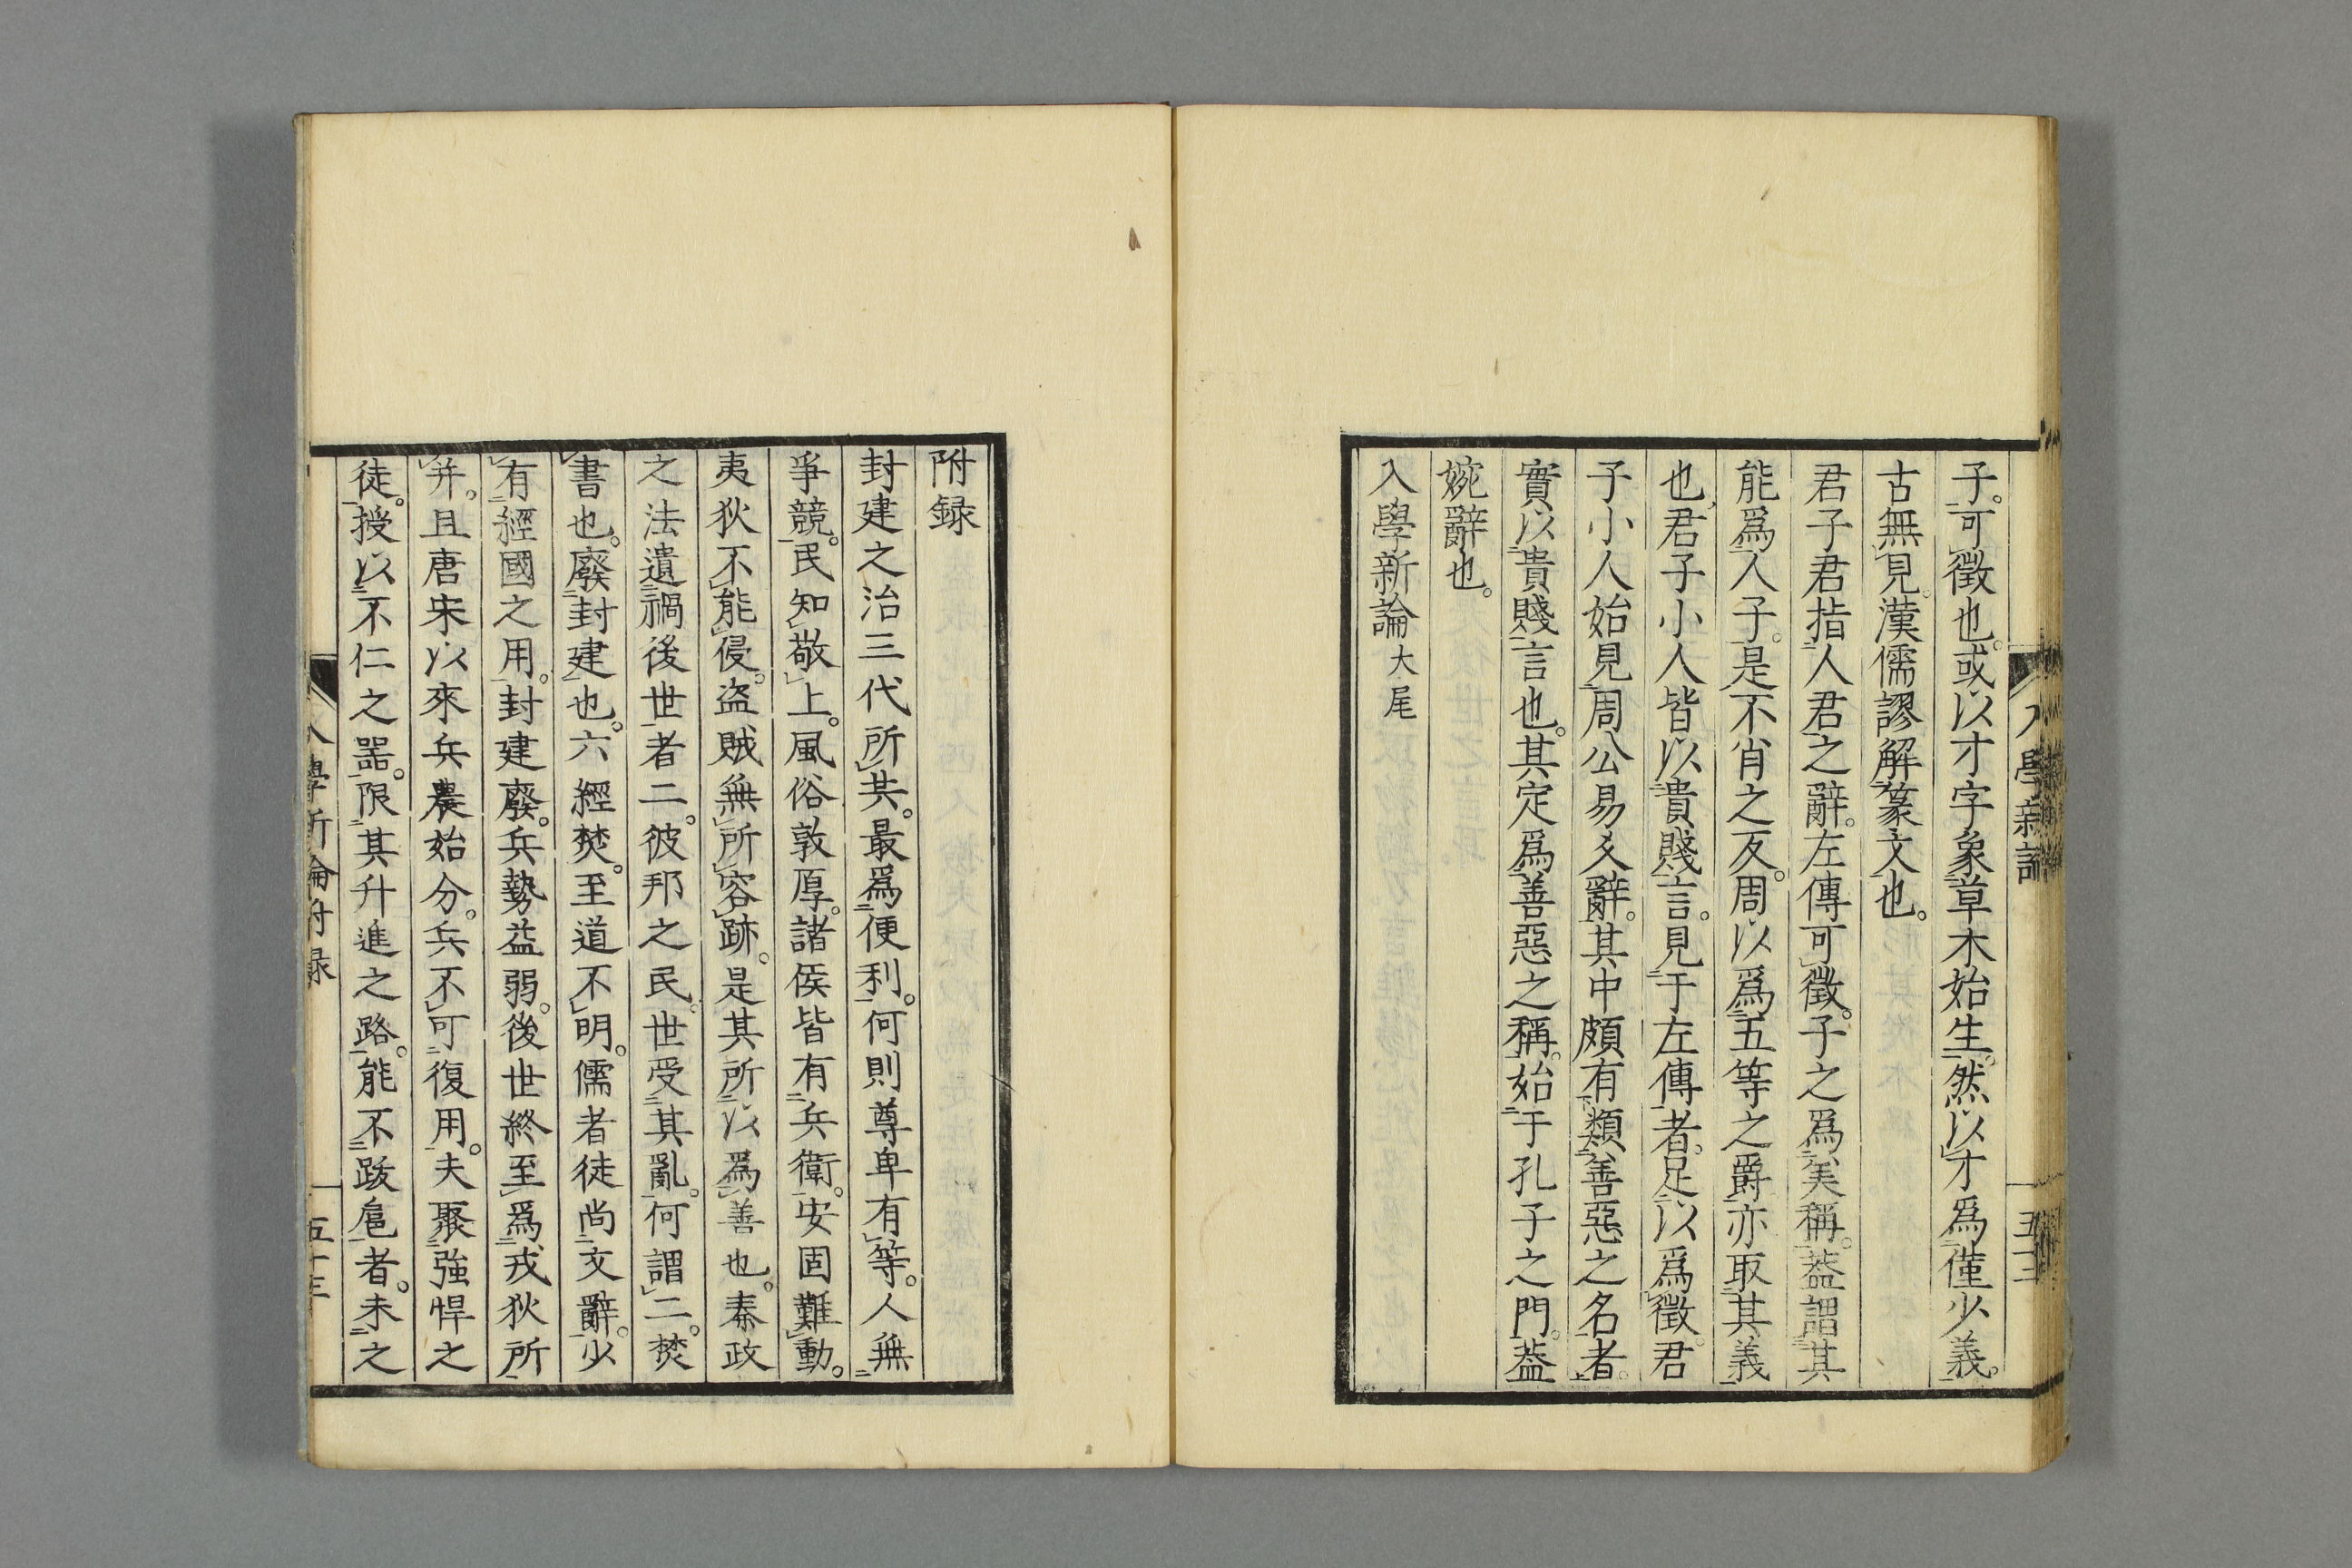 子。可徵也。或以才字象草木始生。然以才爲僅少義。
古無見。漢儒謬解篆文也。
君子君指人君之辭。左傳可徵。子之爲美稱。葢謂其
能爲人子。是不肖之反。周以爲五等之爵亦取其義
也、君子小人皆以貴賤言。見于左傳者。足以爲徵。君
子小人始見周公易爻辭。其中頗有類善惡之名者。
實以貴賤言也。其定爲善惡之稱。始于孔子之門。葢
婉辭也。
入學新論大尾
附録
封建之治三代所共。最爲便利。何則尊卑有等。人無
爭競。民知敬上。風俗敦厚。諸侯皆有兵衛。安固難動。
夷狄不能侵。盗賊無所容跡。是其所以爲善也。秦政
之法遺禍後世者二。彼邦之民。世受其亂。何謂二。焚
書也。廢封建也。六經焚。至道不明。儒者徒尚文辭。少
有經國之用。封建廢。兵勢益弱。後世終至爲戎狄所
并。且唐宋以來兵農始分。兵不可復用。夫聚強悍之
徒。授以不仁之器。限其升進之路。能不跋扈者。未之
入學新論附録
五十三